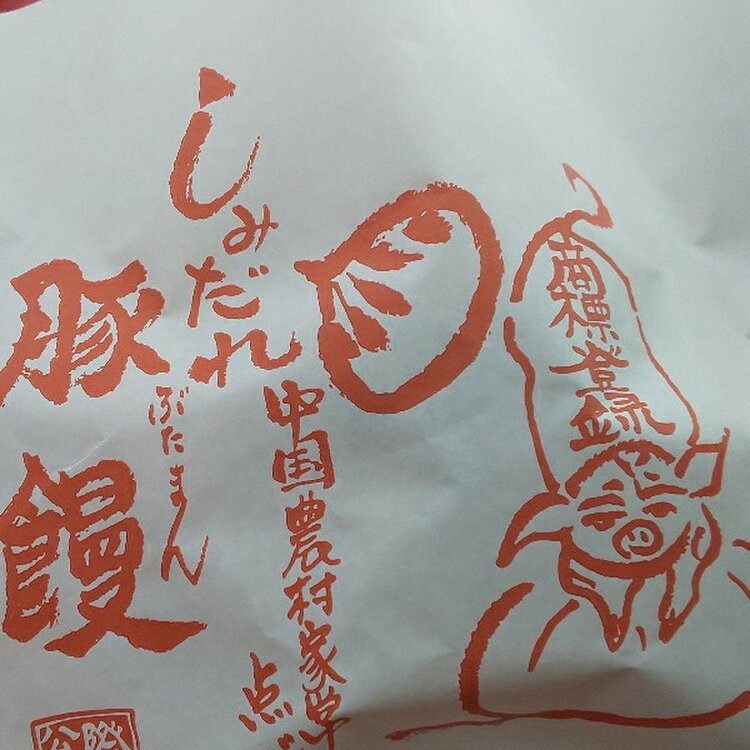 商標登録
中国農村家常
点
しみだれ
豚饅
ぶたまん
公